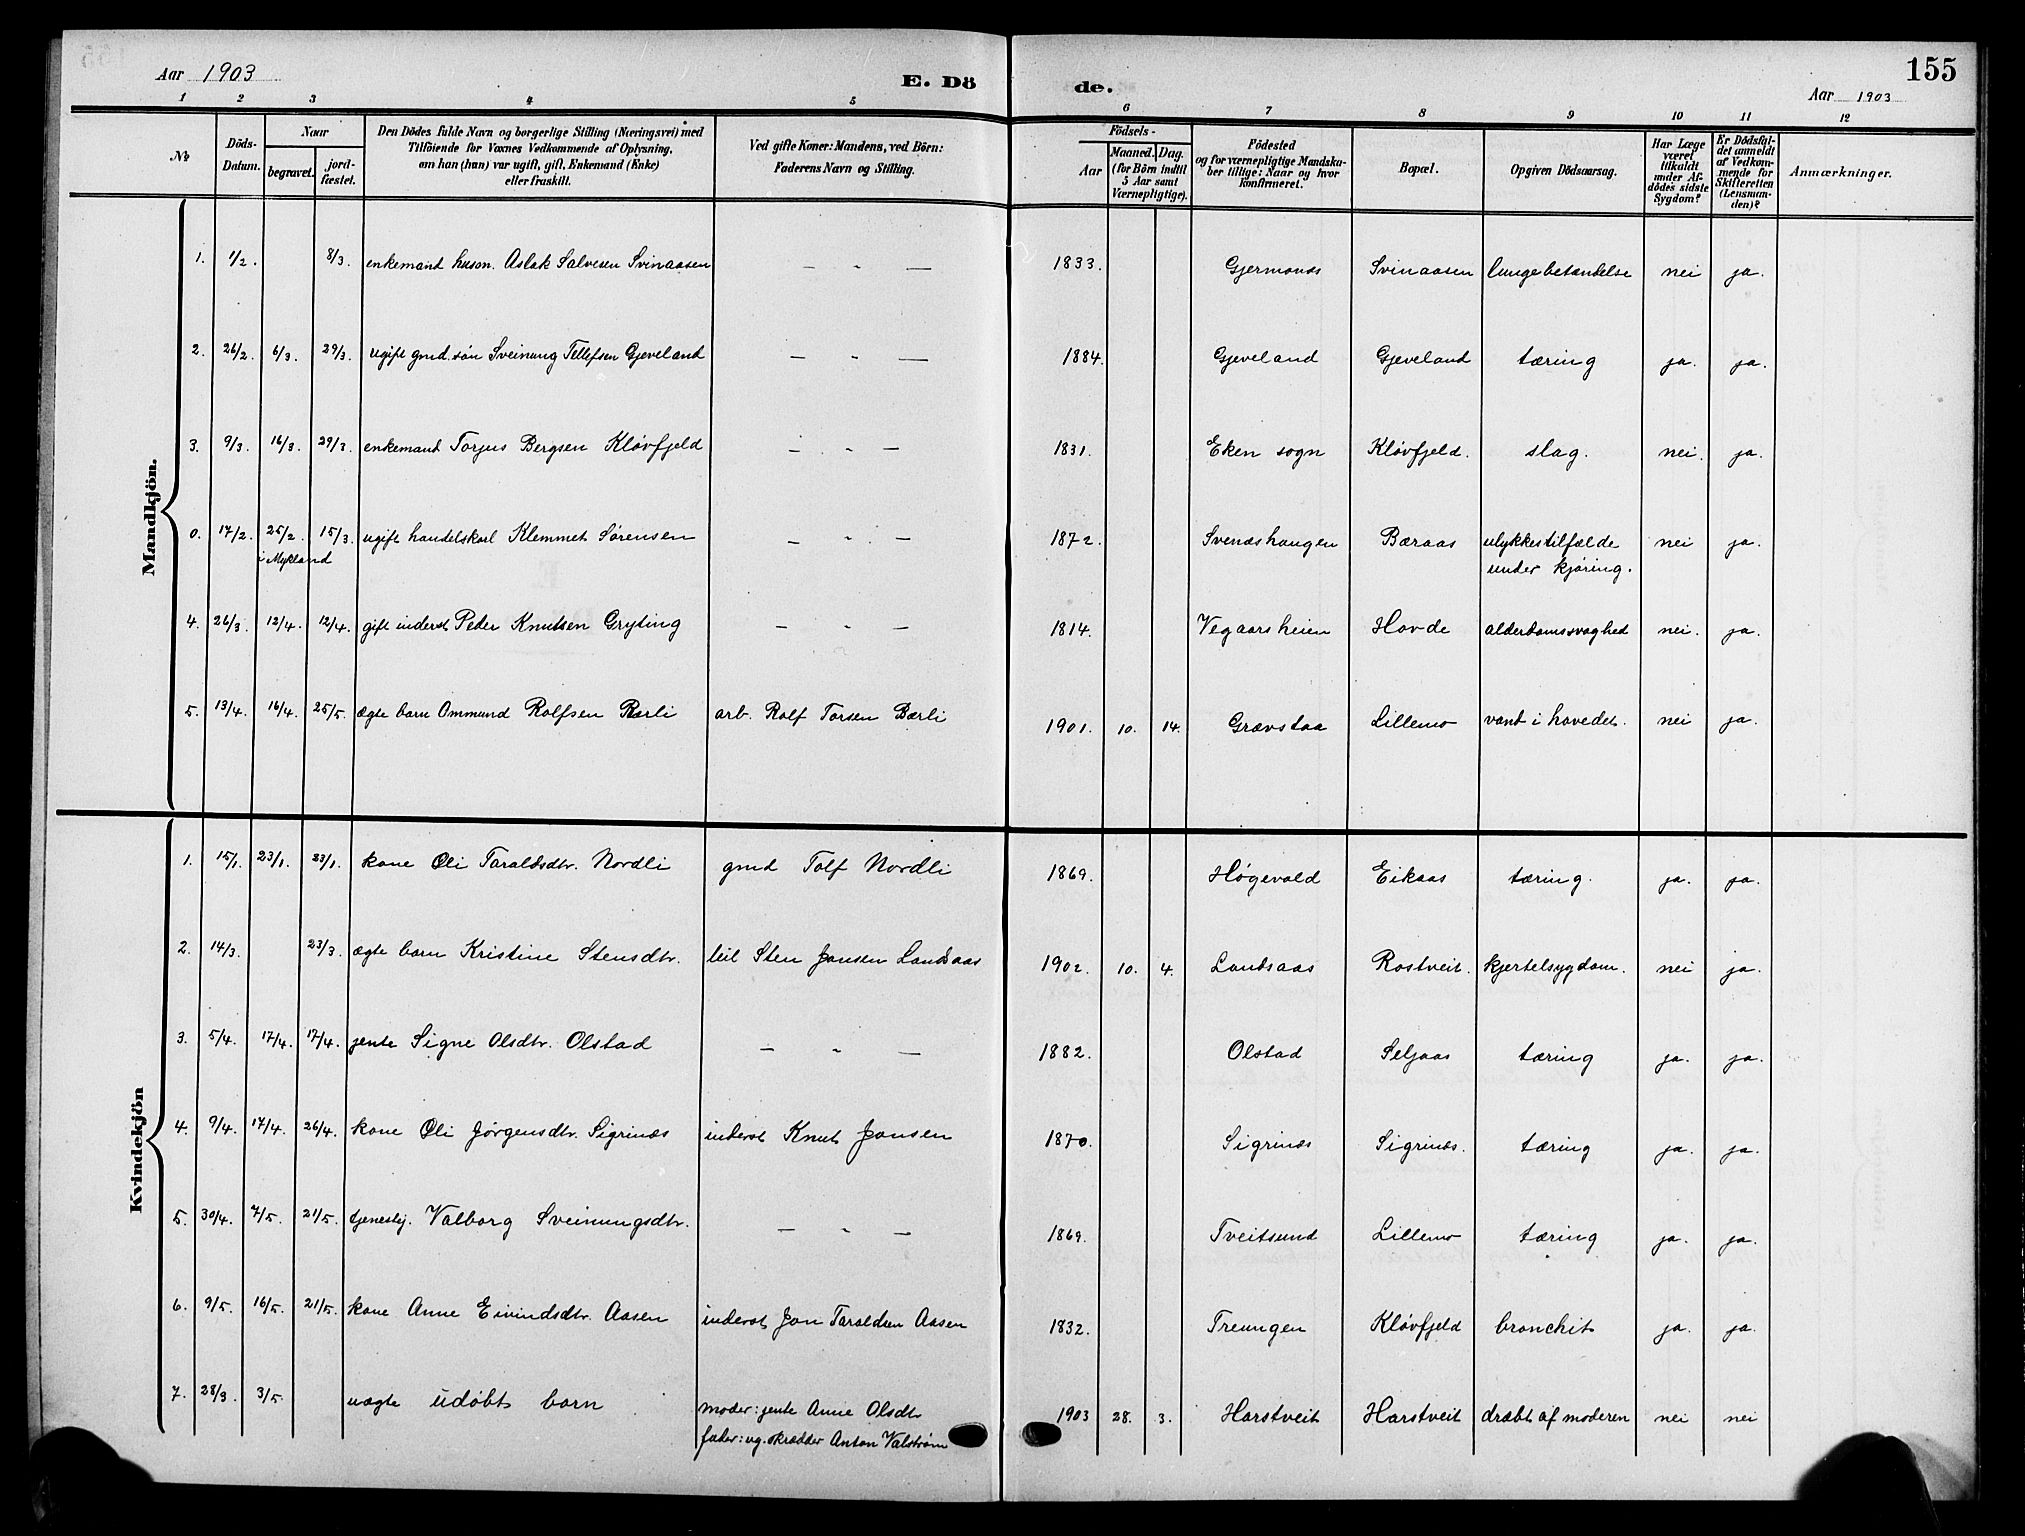 155
Aar 1903
E. Dö
de.
Aar 1903
1 2 3 4 5 6 7 8 9 10 11 12
No
Döds-Datum.
Naar
begravet.
jord-fæstet.
Den Dödes fulde Navn og borgerlige Stilling (Næringsvei) med
Tilföiende for Voxnes Vedkommende af Oplysning,
om han (hun) var ugift, gift, Enkemand (Enke)
eller fraskilt.
Ved gifte Koner: Mandens, ved Börn:
Faderens Navn og Stilling.
Födsels-
Aar
Maaned. Dag.
(for Börn indtil
5 Aar samt
Værnepligtige).
Födested
og for værnepligtige Mandska-
ber tillige: Naar og hvor
konfirmeret.
Bopæl.
Opgiven Dödsaarsag.
Har Læge
været
tilkaldt
under Af-
dödes sidste
Sygdom?
Er Dödsfal-
det anmeldt
af Vedkom-
mende for
Skifteretten
(Lensman-
den)?
Anmærkninger.
Mandkjön.
1. 1/2. 8/3. enkemand husm. Aslak Salvesen Svinaasen — " — 1833. Gjermones Svinaasen lungebetændelse nei ja.
2. 26/2. 6/3. 29/3. ugift gmd. søn Sveinung Tellefsen Gjeveland — " — 1884. Gjeveland Gjeveland tæring ja. ja.
3. 9/3. 16/3. 29/3. enkemand Torjus Bergsen Kløvfjeld — " — 1831. Eken sogn Kløvfjeld. slag. nei. ja.
0. 17/2. 25/2. 15/3. ugift handelskarl Klemmet Sørensen — " — 1872. Svenæshaugen Bæraas ulykkestilfælde nei ja.
i Mykland
under kjøring.
4. 26/3. 12/4. 12/4. gift inderst Peder Knutsen Gryting — " — 1814. Vegaarsheien Hovde alderdomssvaghed nei. ja.
5. 13/4. 16/4. 25/5. ægte barn Ommund Rolfsen Bærli arb. Rolf Torsen Bærli 1901. 10. 14. Grævstaa Lillemo vand i hovedet. nei ja.
Kvindekjön
1. 15/1. 23/1. 23/1. kone Oli Taraldsdtr. Nordli gmd Tolf Nordli 1869. Høgevold Eikaas tæring. ja. ja.
2. 14/3. 23/3. ægte barn Kristine Stensdtr. leil Sten Jansen Landsaas 1902. 10. 4. Landsaas Rostveit. kjertelsygdom. nei ja.
3. 5/4. 17/4. 17/4. jente Signe Olsdtr. Olstad — " — 1882. Olstad Seljaas tæring ja. ja.
4. 9/4. 17/4. 26/4. kone Oli Jørgensdtr. Sigrinæs inderst Knut Jansen 1870. Sigrinæs Sigrinæs. tæring ja. ja.
5. 30/4. 7/5. 21/5. tjenestej. Valborg Sveinungsdtr. — " — 1869. Tveitsund Lillemo tæring ja. ja.
6. 9/5. 16/5. 21/5. kone Anne Eivindsdtr. Aasen inderst Jon Taraldsen Aasen 1832. Treungen Kløvfjeld bronchit ja. ja.
7. 28/3. 3/5. uægte udøbt barn moder: jente Anne Olsdtr 1903 28. 3. Harstveit Harstveit dræbt af moderen nei nei
fader: ug. skrædder Anton Valstrøm